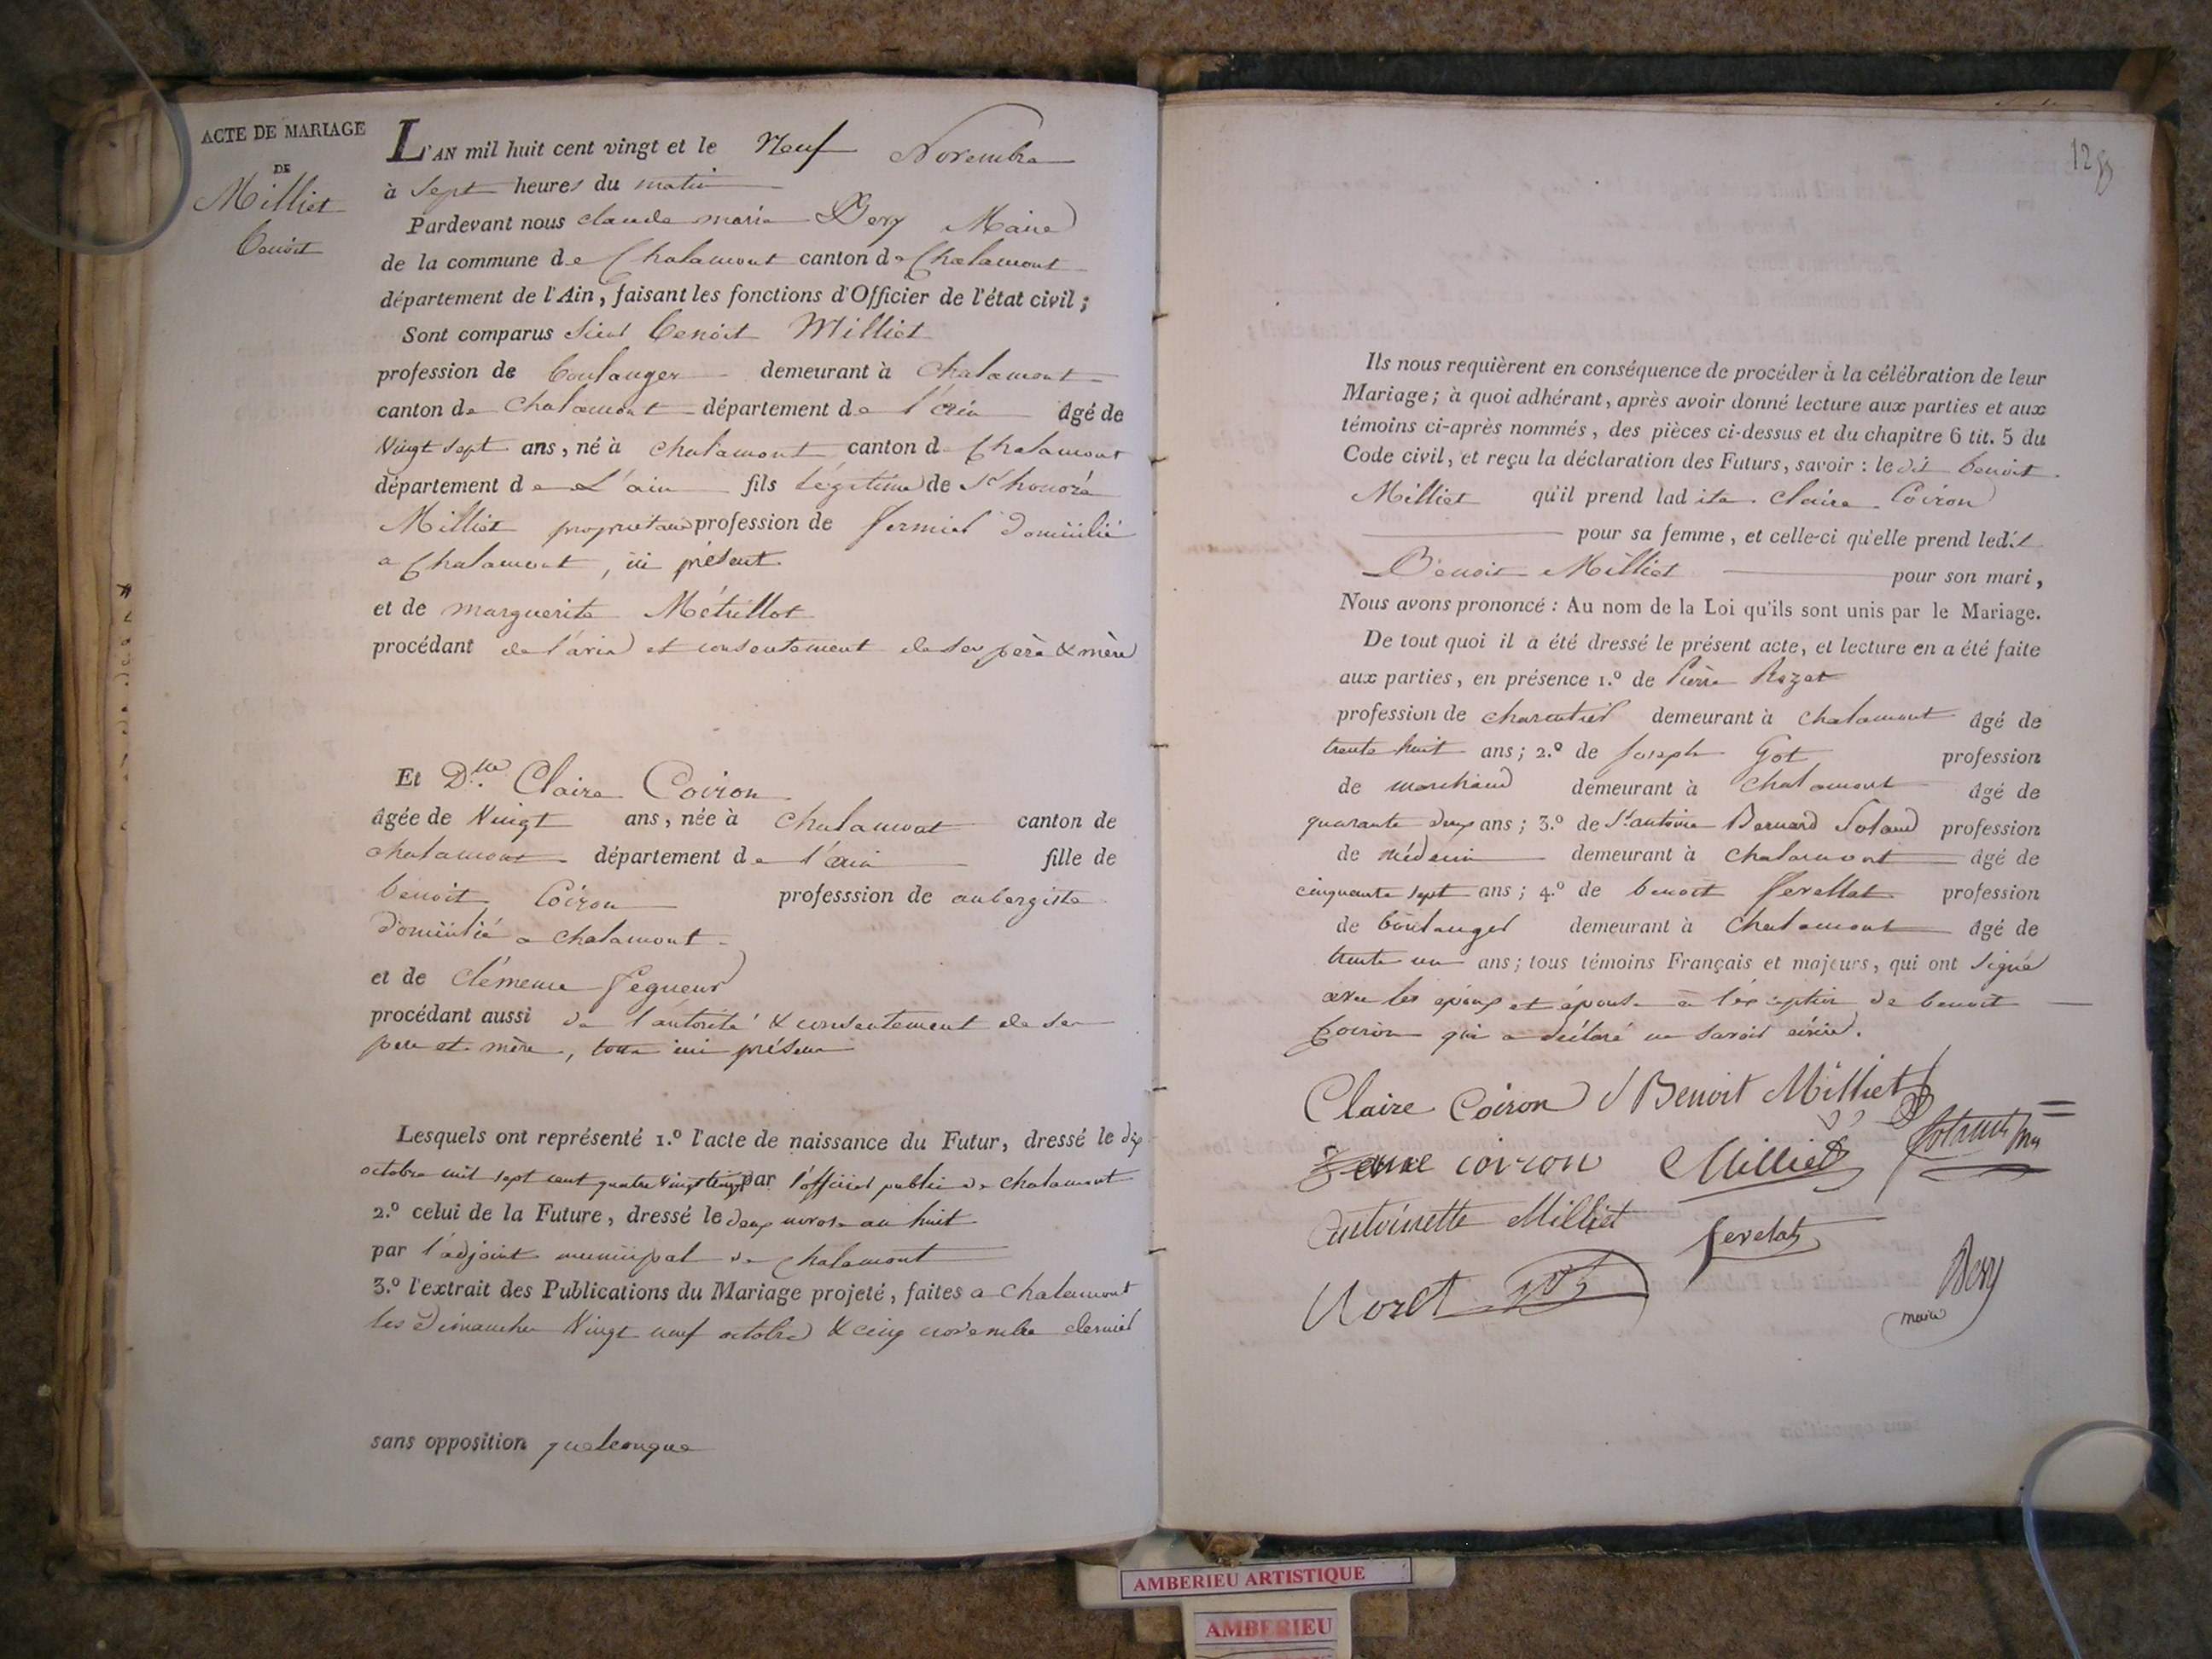 ACTE DE MARIAGE
DE
Milliet
benoit
L'AN mil huit cent vingt et le Neuf Novembre
à sept heures du matin
Pardevant nous claude marie Dery Maire
de la commune de Chalamont canton de Chalamont
département de l'Ain, faisant les fonctions d'Officier de l'état civil ;
Sont comparus sieur benoit Milliet
profession de boulanger demeurant à chalamont
canton de chalamont département de l'ain âgé de
vingt sept ans, né à chalamont canton d Chalamont
département de L'ain fils légitime de Sr honoré
Milliet propriétaire profession de fermier domicilié
a Chalamont, ici présent
et de marguerite Métrillot
procédant de l'avis et consentement de ses père & mère
Et Dlle Claire Coiron
âgée de vingt ans, née à chalamont canton de
chalamont département de l'ain fille de
benoit Coiron professsion de aubergiste
domicilié a chalamont
et de clémence
procédant aussi de l'autorité & consentement de ses
père et mère, tous ici présens
Lesquels ont représenté 1.º l'acte de naissance du Futur, dressé le dix
octobre mil sept cent quatre vingt treize par l'officier public de chalamont
2.º celui de la Future, dressé le deux nivose an huit
par l'adjoint municipal de chalamont
3.º l'extrait des Publications du Mariage projeté, faites a chalamont
les dimanches vingt neuf octobre & cinq novembre dernier
sans opposition quelconque
125
Ils nous requièrent en conséquence de procéder à la célébration de leur
Mariage; à quoi adhérant, après avoir donné lecture aux parties et aux
témoins ci-après nommés, des pièces ci-dessus et du chapitre 6 tit. 5 du
Code civil, et reçu la déclaration des Futurs, savoir : le dit benoit
Milliet qu'il prend lad ite claire Coiron
pour sa femme, et celle-ci qu'elle prend ledit
Benoit Milliet pour son mari,
Nous avons prononcé : Au nom de la Loi qu'ils sont unis par le Mariage.
De tout quoi il a été dressé le présent acte, et lecture en a été faite
aux parties, en présence 1.º de Pierre
profession de demeurant à chalamont âgé de
trente huit ans ; 2.º de joseph Got profession
de marchand demeurant à chalamont âgé de
quarante deux ans ; 3.º de Sr antoine Bernard profession
de médecin demeurant à chalamont âgé de
cinquante sept ans ; 4.º de benoit ferellat profession
de boulanger demeurant à chalamont âgé de
trente un ans ; tous témoins Français et majeurs, qui ont signé
avec les époux et épouse a l'exception de benoit
Coiron qui a déclaré ne savoir écrire.
Claire Coiron Benoit Milliet
coiron Milliet
antoinette Milliet ferelat
Dery
maire
AMBERIEU ARTISTIQUE
AMBERIEU